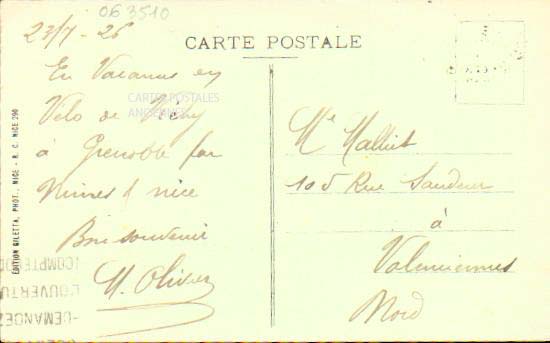 063510
23/7 - 26
CARTE POSTALE
En Vacances en
Velo de Vichy
à Grenoble par
Nimes & nice
Bon souvenir
H. Olivier
CARTES POSTALES
ANCIENNES
EDITION GILETTA, PHOT., NICE - R. C. NICE 290
Mr
105 Rue
à
Valenciennes
Nord